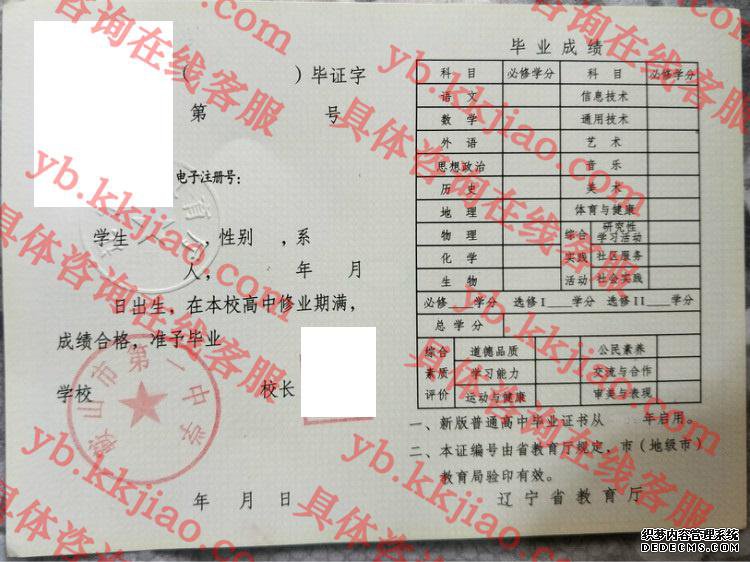 （ ）毕证字
第 号
电子注册号：
学生 ，性别 ，系
人， 年 月
日出生，在本校高中修业期满，
成绩合格，准予毕业
学校 校长
鞍山市第一中学
年 月 日
毕业成绩
科目 必修学分 科目 必修学分
语文 信息技术
数学 通用技术
外语 艺术
思想政治 音乐
历史 美术
地理 体育与健康
物理 综合 研究性学习活动
化学 实践 社区服务
生物 活动 社会实践
必修___学分 选修I___学分 选修II___学分
总学分
综合 道德品质 公民素养
素质 学习能力 交流与合作
评价 运动与健康 审美与表现
一、新版普通高中毕业证书从 年启用。
二、本证编号由省教育厅规定，市（地级市）
教育局验印有效。
辽宁省教育厅
具体咨询在线客服
yb.kkjiao.com
织梦内容管理系统
DEDECMS.COM